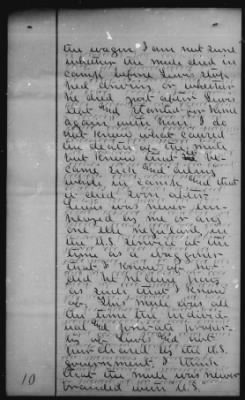 the wagon. I am not sure
whether the mule died in
camp before Lewis stop
ped driving or whether
he died just after Lewis
left and started for home
again with him. I do
not know what caused
the death of the mule
but know that he be-
came sick and ailing
while in camp and that
it died soon after.
Lewis was never em-
ployed by me or any
one else regularly in
the U.S. service at the
time as a wagoner
that I know of nor
did he receive pay
as such that I know
of. This mule was all
the time the individ-
ual and private proper-
ty of Lewis and not
purchased by the U.S.
government. I think
that the mule was never
branded with "U.S."
10